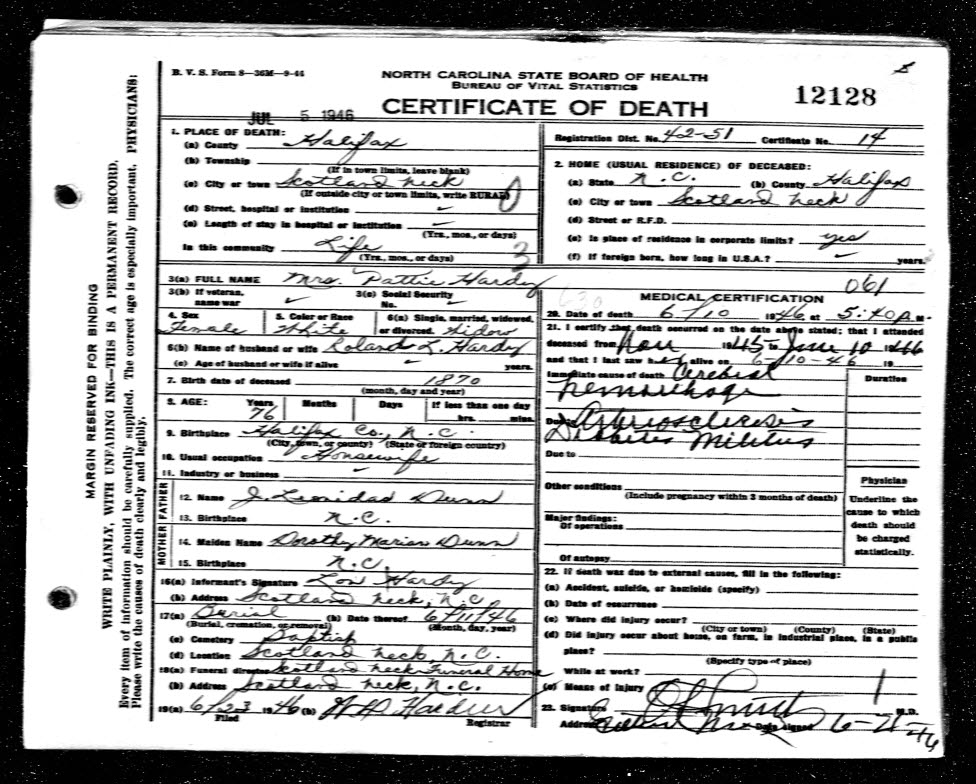 B. V. S. Form 8—36M—9-44
NORTH CAROLINA STATE BOARD OF HEALTH
BUREAU OF VITAL STATISTICS
CERTIFICATE OF DEATH
12128
JUL 5 1946
MARGIN RESERVED FOR BINDING
WRITE PLAINLY, WITH UNFADING INK—THIS IS A PERMANENT RECORD.
Every item of information should be carefully supplied. The correct age is especially important. PHYSICIANS:
Please write the causes of death clearly and legibly.
1. PLACE OF DEATH:
(a) County Halifax
(b) Township
(If in town limits, leave blank)
(c) City or town Scotland Neck
(If outside city or town limits, write RURAL) 0
(d) Street, hospital or institution ✓
(e) Length of stay in hospital or institution ✓
(Yrs., mos., or days)
In this community Life 3
(Yrs., mos., or days)
Registration Dist. No. 42-51 Certificate No. 14
2. HOME (USUAL RESIDENCE) OF DECEASED:
(a) State N.C. (b) County Halifax
(c) City or town Scotland Neck
(d) Street or R.F.D.
(e) Is place of residence in corporate limits? yes
(f) If foreign born, how long in U.S.A.? ✓ years.
3(a) FULL NAME Mrs. Pattie Hardy 061
3(b) If veteran, name war ✓ 3(c) Social Security No. ✓
4. Sex Female 5. Color or Race White 6(a) Single, married, widowed, or divorced. Widow
6(b) Name of husband or wife Roland L. Hardy
(c) Age of husband or wife if alive ✓ years.
7. Birth date of deceased 1870
(month, day and year)
8. AGE: Years 76 Months Days If less than one day hrs. mins.
9. Birthplace Halifax Co., N.C.
(City, town, or county) (State or foreign country)
10. Usual occupation Housewife
11. Industry or business ✓
FATHER
12. Name J. Leonidad Dunn
13. Birthplace N.C.
MOTHER
14. Maiden Name Dorothy Marian Dunn
15. Birthplace N.C.
16(a) Informant's Signature Lon Hardy
(b) Address Scotland Neck, N.C.
17(a) Burial (b) Date thereof 6/11/46
(Burial, cremation, or removal) (Month, day, year)
(c) Cemetery Baptist
(d) Location Scotland Neck, N.C.
18(a) Funeral director Scotland Neck Funeral Home
(b) Address Scotland Neck, N.C.
19(a) 6/23 1946 (b)
Filed Registrar
630 MEDICAL CERTIFICATION
20. Date of death 6/10 1946 at 5:40 A.M.
21. I certify that death occurred on the date above stated; that I attended
deceased from Nov 1945 to June 10 1946
and that I last saw her alive on 6-10-46 19
Immediate cause of death Cerebral
hemorrhage
Duration
Due to Arteriosclerosis
Diabetes Militus
Due to
Other conditions
(Include pregnancy within 3 months of death)
Major findings:
Of operations
Of autopsy
Physician
Underline the
cause to which
death should
be charged
statistically.
22. If death was due to external causes, fill in the following:
(a) Accident, suicide, or homicide (specify)
(b) Date of occurrence
(c) Where did injury occur?
(City or town) (County) (State)
(d) Did injury occur about home, on farm, in industrial place, in a public
place?
(Specify type of place)
While at work?
(e) Means of Injury 1
23. Signature M.D.
Address Date signed 6-21-46